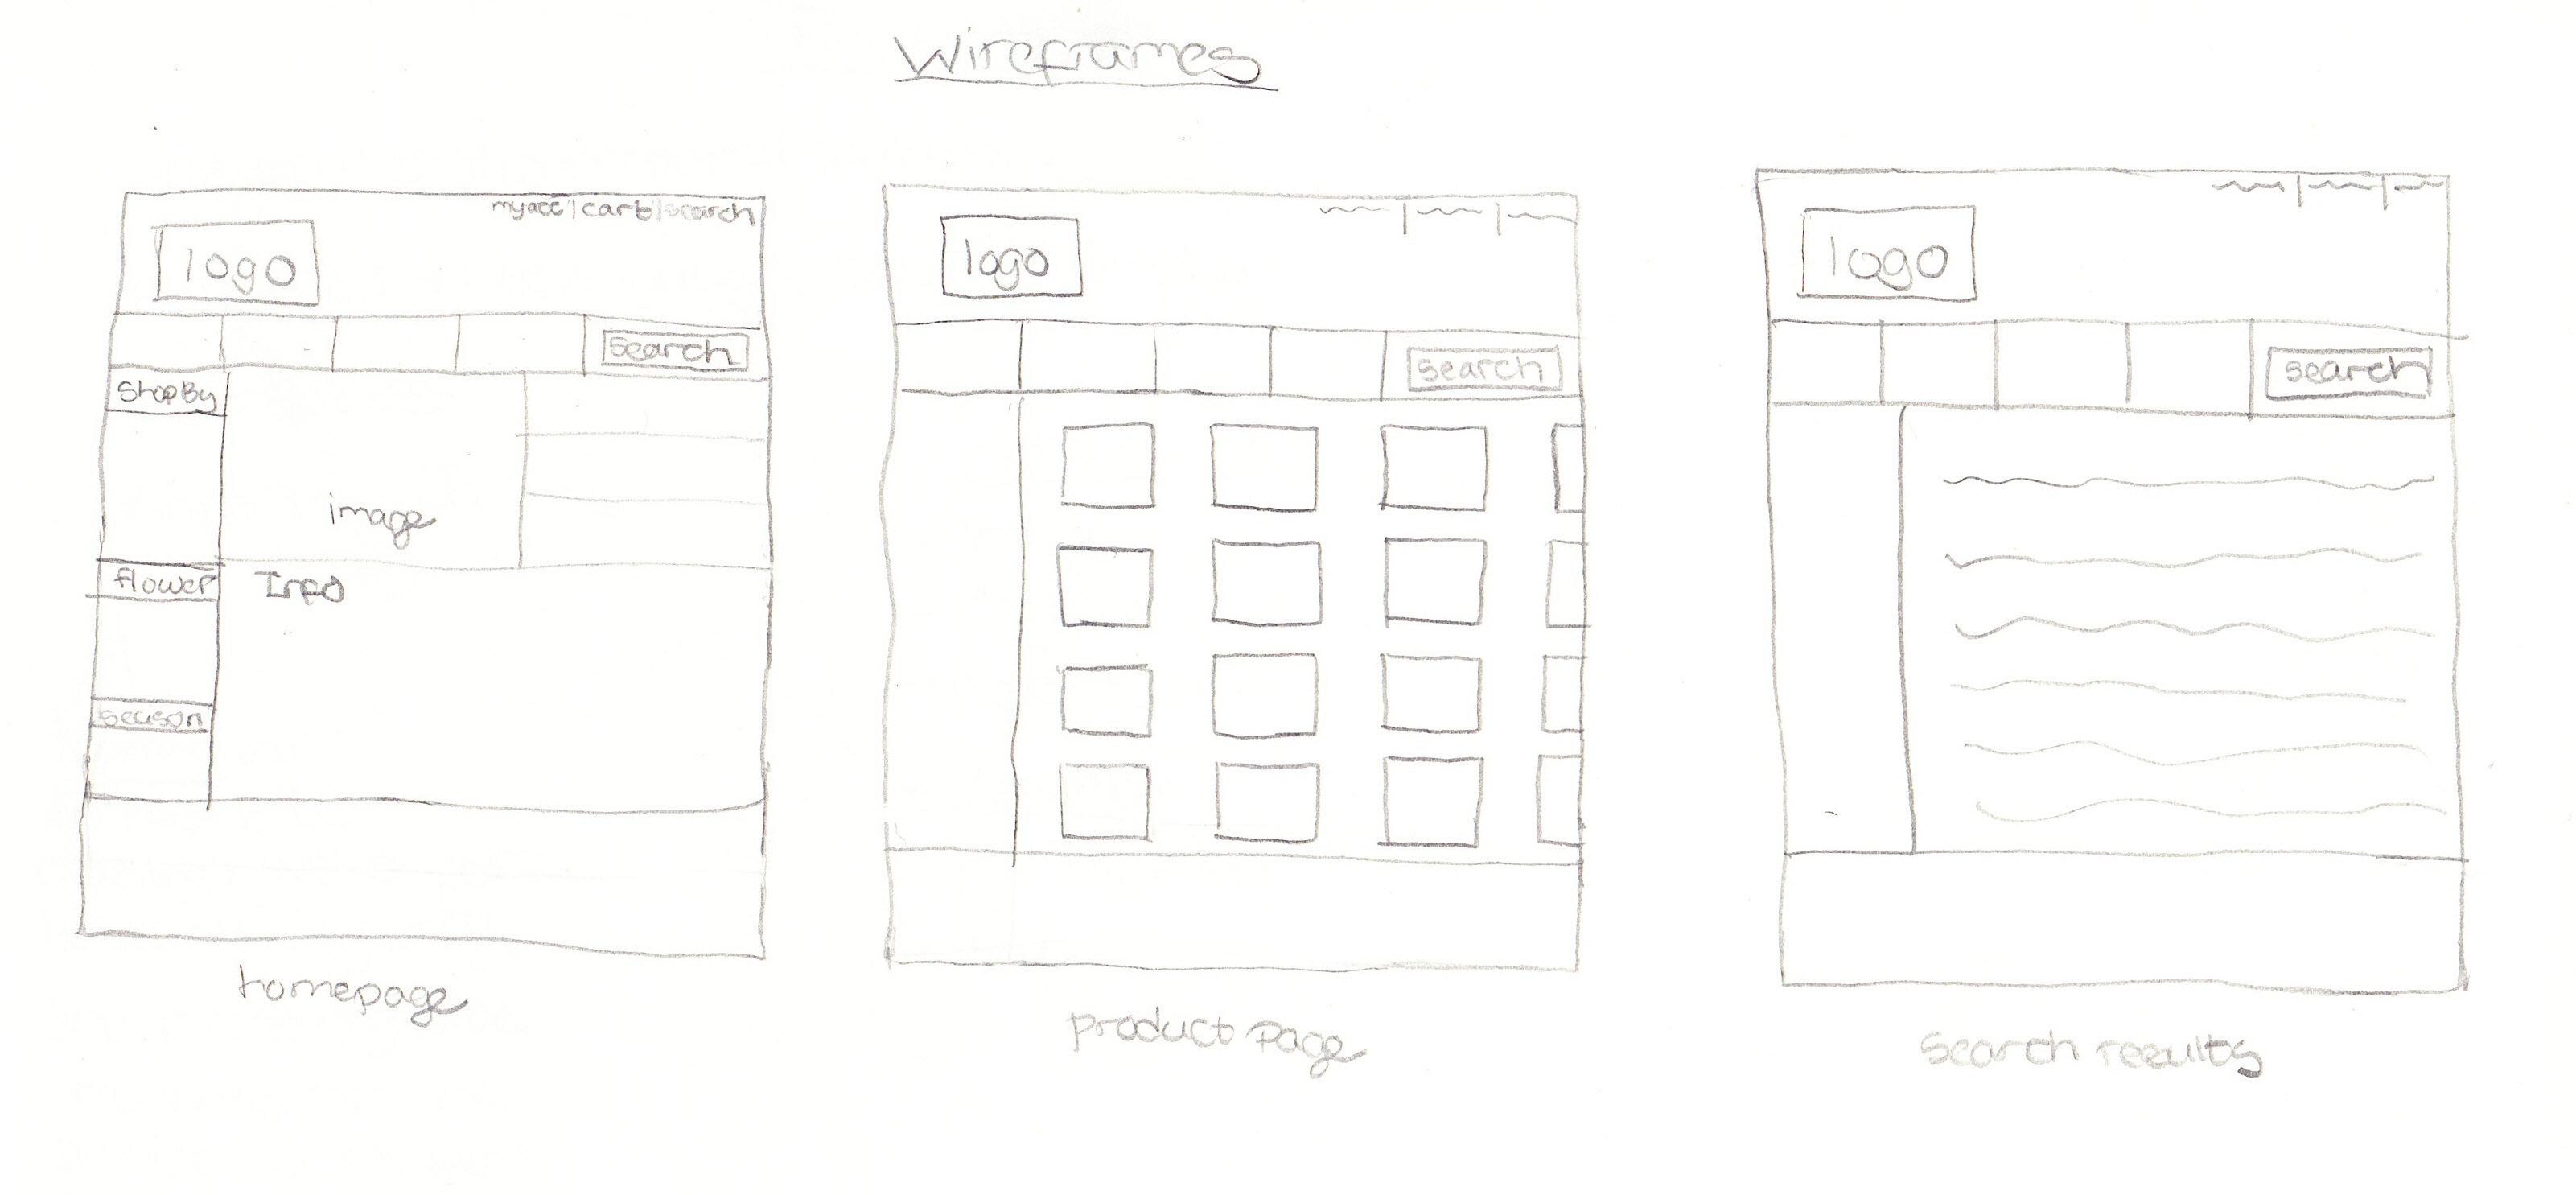 Wireframes
my acc | cart | search
logo
search
Shop By
image
flower
Info
season
homepage
logo
search
product page
logo
search
search results